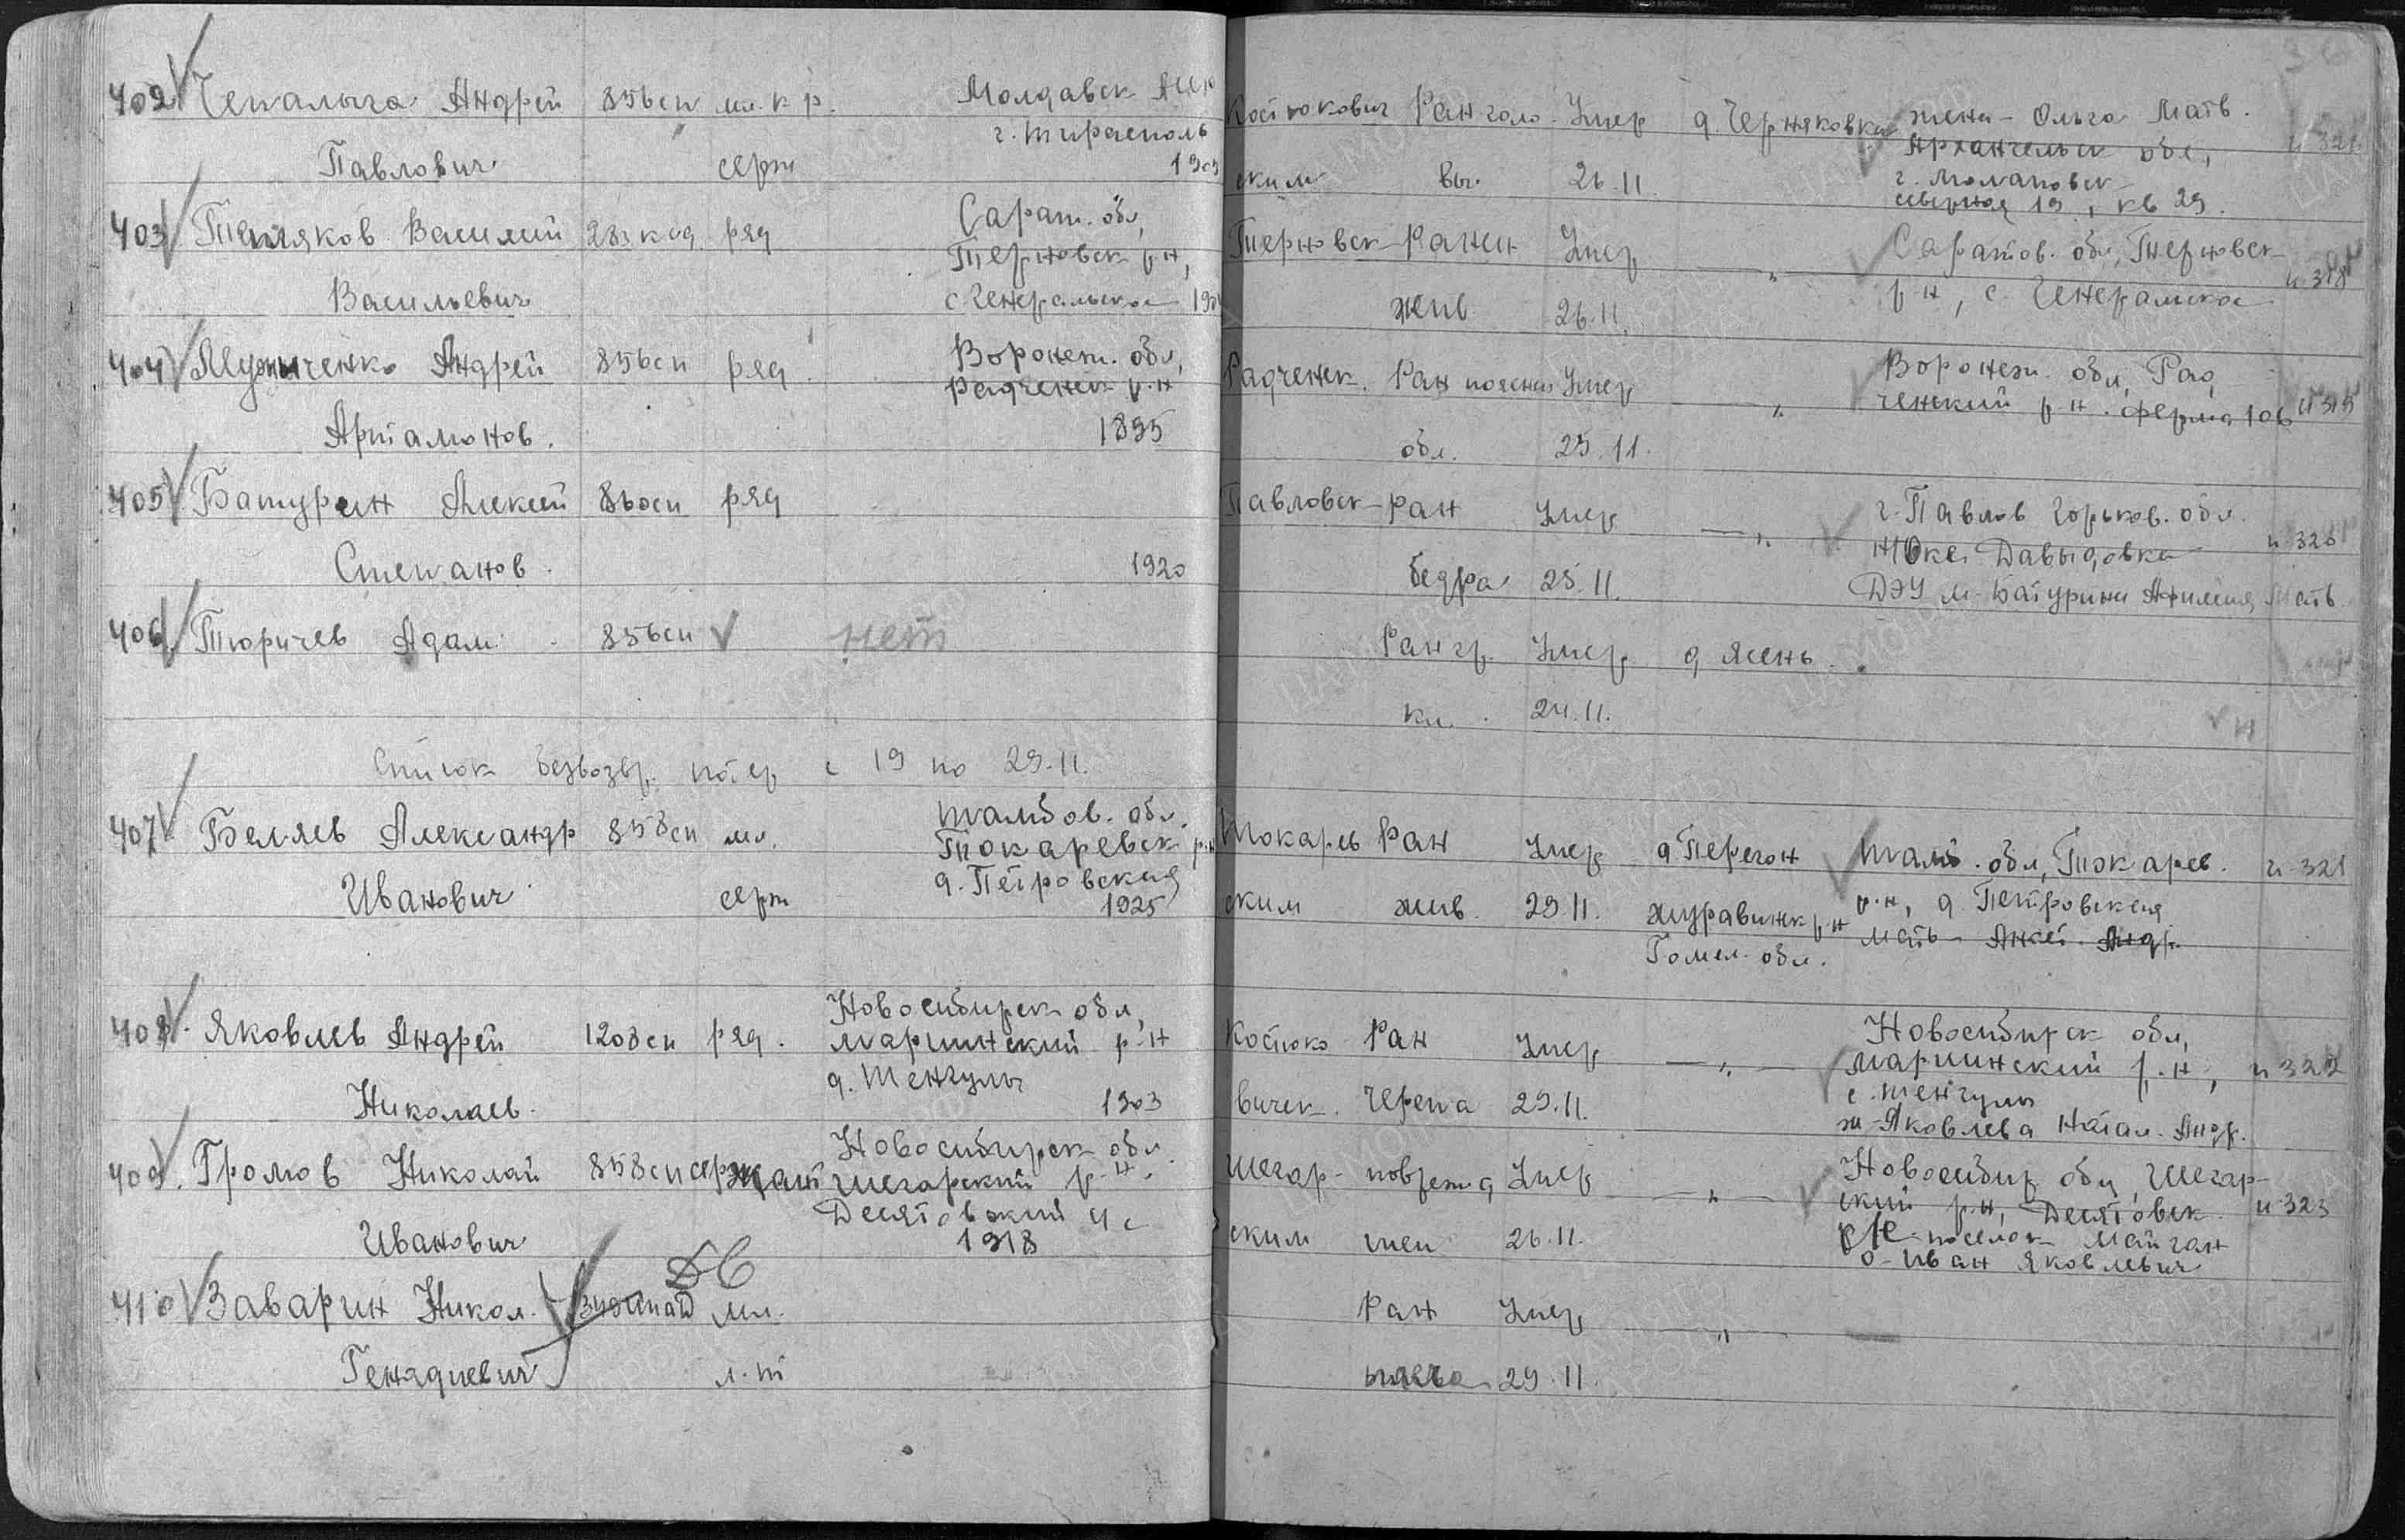 402 Чепалыга Андрей 856сп мл. к р. Молдавск АССР Костюкович Ран голо- Умер д. Черняковка жена - Ольга Матв.
г. Тирасполь Архангельск обл,
Павлович серж 190 ским вы. 26.11. г. Молотовск
403 Василий ряд Сарат. обл, северная 19, кв 29.
Терновск р-н, Терновск Ранен Умер — " — Саратов. обл, Терновск
Васильевич с. Генеральское жив 26.11. р н, с. Генеральское и 318
404 Андрей 856сп ряд. Воронеж. обл, Радченск. Ран поясни Умер — " — Воронеж. обл, Рад
Радченск р-н ченский р н. ферма 106 и 315
Артамонов. 1895 обл. 25.11.
405 Батурин Алексей 860сп ряд Павловск Ран Умер — " — г. Павлов Горьков. обл.
Давыдовка и 320
Степанов. 1920 бедра 25.11. ДЭУ м-Батурина
406 Тюричев Адам 856сп нет Ран гр. Умер д Ясень.
кл. 24.11. н
Список безвозвр. потер с 19 по 29.11.
407 Беляев Александр 858сп мл. Тамбов. обл. Токарев Ран Умер д Перегон Тамб. обл, Токарев. и 321
Токаревск р.н
Иванович серж д. Петровская ским жив. 29.11. Журавичск р н р.н, д Петровская
1925 Гомел. обл. мать Анат. Андр.
408. Яковлев Андрей 1208сп ряд. Новосибирск обл, Костюко Ран Умер — " — Новосибирск обл,
мариинский р-н мариинский р.н, и 322
д. Тенгулы с. Тенгулы
Николаев. 1903 вичск. черепа 29.11. ж-Яковлева Натал. Андр.
409. Громов Николай 858сп сержант Новосибирск обл. Шегар- поврежд Умер — " — Новосибир обл, Шегар-
Шегарский р-н. ский р.н, Десятовск. и 323
Иванович Десятовский с ским шеи 26.11. поселок Майган
1918 о-Иван Яковлевич
410 Заварин Никол. мл. Ран Умер — " —
Генадиевич л.т плеча 29.11.